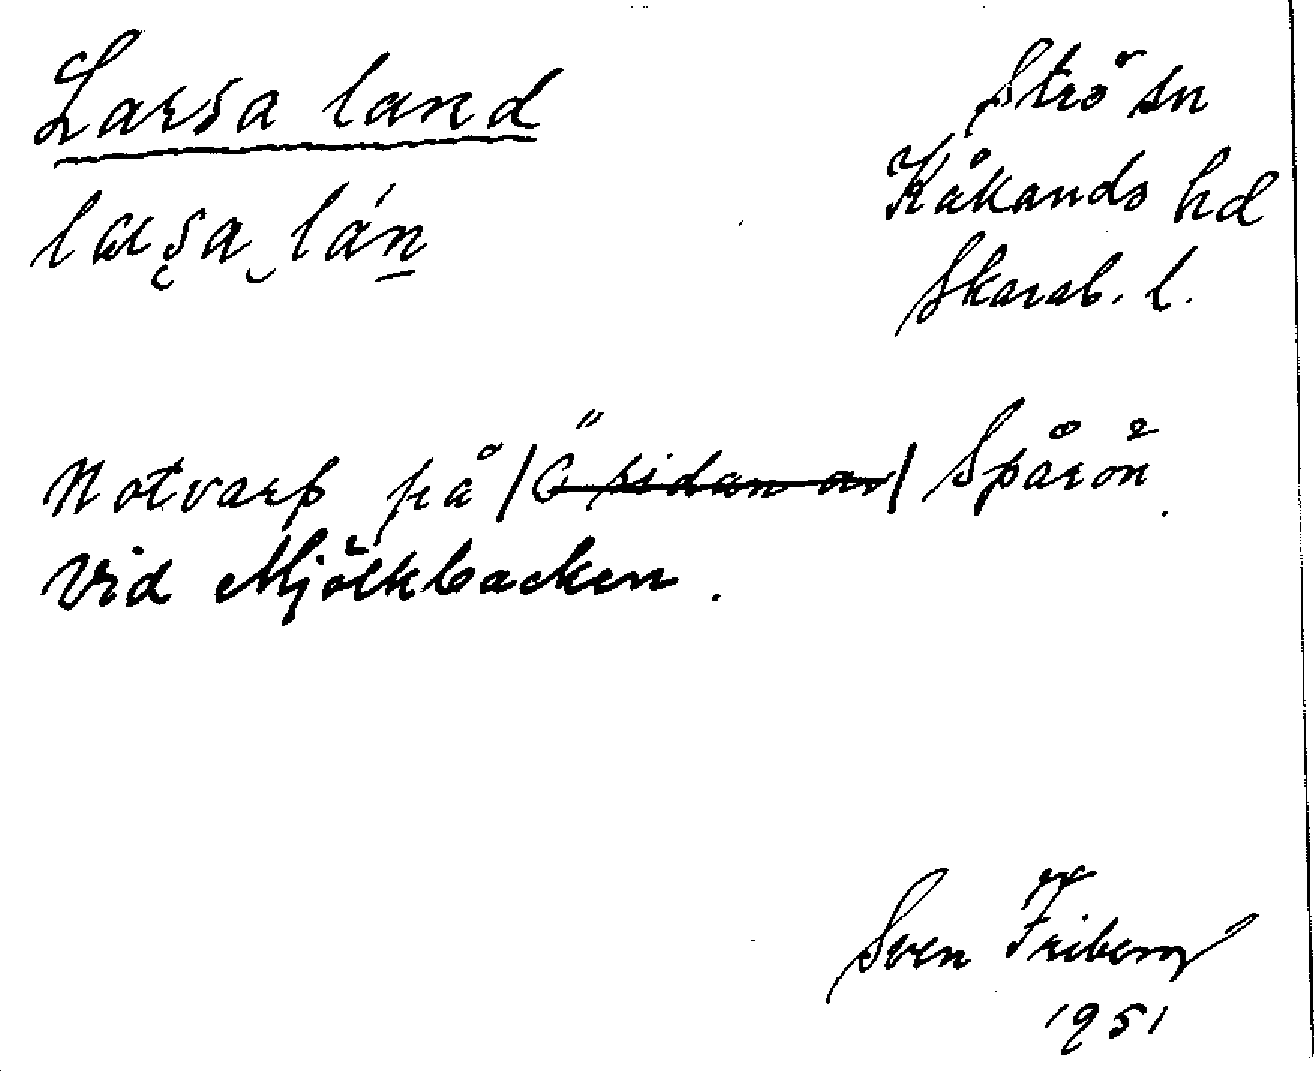 Larsa land
Strö sn
Kåkands hd
Skarab. l.
Notvarp på /Ö sidan av/ Spårön.
Vid Mjölkbacken.
Sven Friberg
1951